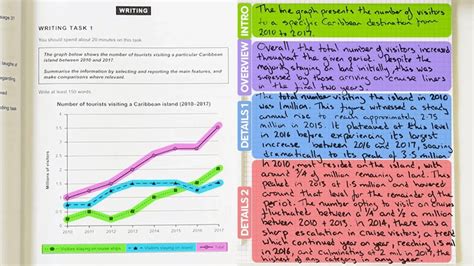 WRITING
WRITING TASK 1
You should spend about 20 minutes on this task.
The graph below shows the number of tourists visiting a particular Caribbean
island between 2010 and 2017.
Summarise the information by selecting and reporting the main features, and
make comparisons where relevant.
Write at least 150 words.
Number of tourists visiting a Caribbean island (2010–2017)
Millions of visitors
4
3.5
3
2.5
2
1.5
1
0.5
0
2010 2011 2012 2013 2014 2015 2016 2017
Visitors staying on cruise ships
Visitors staying on island
Total
INTRO
The line graph presents the number of visitors
to a specific Caribbean destination from
2010 to 2017.
OVERVIEW
Overall, the total number of visitors increased
throughout the given period. Despite the
majority staying on land initially, this was
surpassed by those arriving on cruise liners
in the final two years.
DETAILS 1
The total number visiting the island in 2010
was 1 million. This figure witnessed a steady
annual rise to reach approximately 2.75
million in 2015. It plateaued at this level in
2016 before experiencing its largest
increase between 2016 and 2017, soaring
dramatically to its peak of 3.5 million
DETAILS 2
In 2010, most resided on the island, with
around 3/4 of million remaining on land. This
peaked in 2015 at 1.5 million and hovered
around that level for the remainder of the
period. The number opting to visit on cruises
fluctuated between a 1/4 and 1/2 a million
between 2010 and 2015. In 2014, there was a
sharp escalation on cruise visitors, a trend
which continued year on year, reaching 1.5 million
in 2016, and culminating at 2 mil in 2017, the
highest of any category